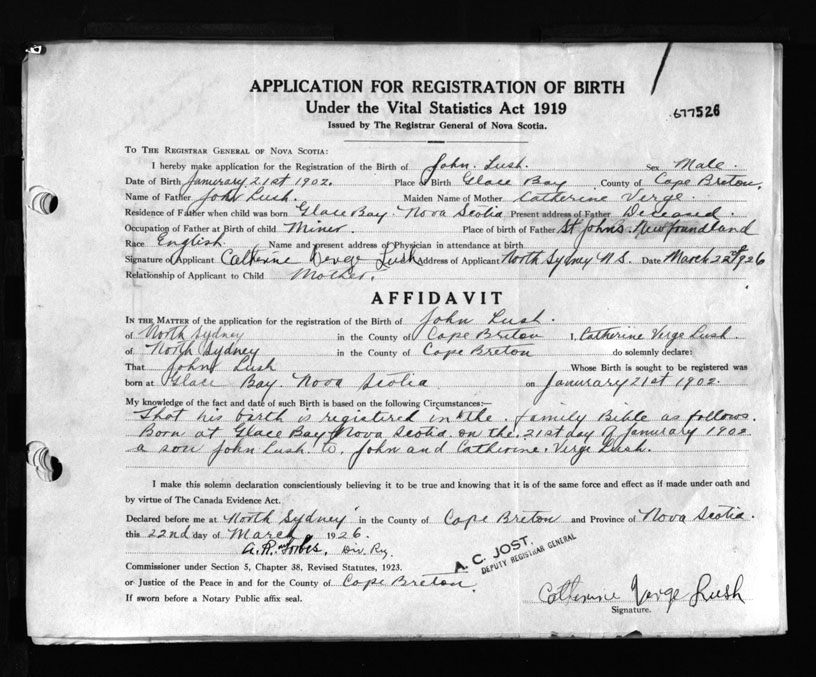 APPLICATION FOR REGISTRATION OF BIRTH
Under the Vital Statistics Act 1919
Issued by The Registrar General of Nova Scotia.
677526
To The Registrar General of Nova Scotia:
I hereby make application for the Registration of the Birth of John Lush. Sex Male.
Date of Birth Janurary 21st 1902. Place of Birth Glace Bay County of Cape Breton.
Name of Father John Lush. Maiden Name of Mother Catherine Verge.
Residence of Father when child was born Glace Bay. Nova Scotia Present address of Father Deceased.
Occupation of Father at Birth of child Miner. Place of birth of Father St Johns. Newfoundland
Race English. Name and present address of Physician in attendance at birth
Signature of Applicant Catherine Verge Lush Address of Applicant North Sydney N.S. Date March 22nd 1926
Relationship of Applicant to Child Mother.
AFFIDAVIT
In the Matter of the application for the registration of the Birth of John Lush.
of North Sydney in the County of Cape Briton I, Catherine Verge Lush.
of North Sydney in the County of Cape Breton do solemnly declare:
That John Lush Whose Birth is sought to be registered was
born at Glace Bay. Nova Scotia on Janurary 21st 1902.
My knowledge of the fact and date of such Birth is based on the following Circumstances:—
That his birth is registered in the family Bible as follows.
Born at Glace Bay Nova Scotia on the 21st day of Janurary 1902
a son John Lush to John and Catherine Verge Lush.
I make this solemn declaration conscientiously believing it to be true and knowing that it is of the same force and effect as if made under oath and
by virtue of The Canada Evidence Act.
Declared before me at North Sydney in the County of Cape Breton and Province of Nova Scotia.
this 22nd day of March 1926.
A. R. Forbes, Div. Reg.
A. C. JOST,
DEPUTY REGISTRAR GENERAL
Commissioner under Section 5, Chapter 38, Revised Statutes, 1923.
or Justice of the Peace in and for the County of Cape Breton.
If sworn before a Notary Public affix seal.
Catherine Verge Lush
Signature.